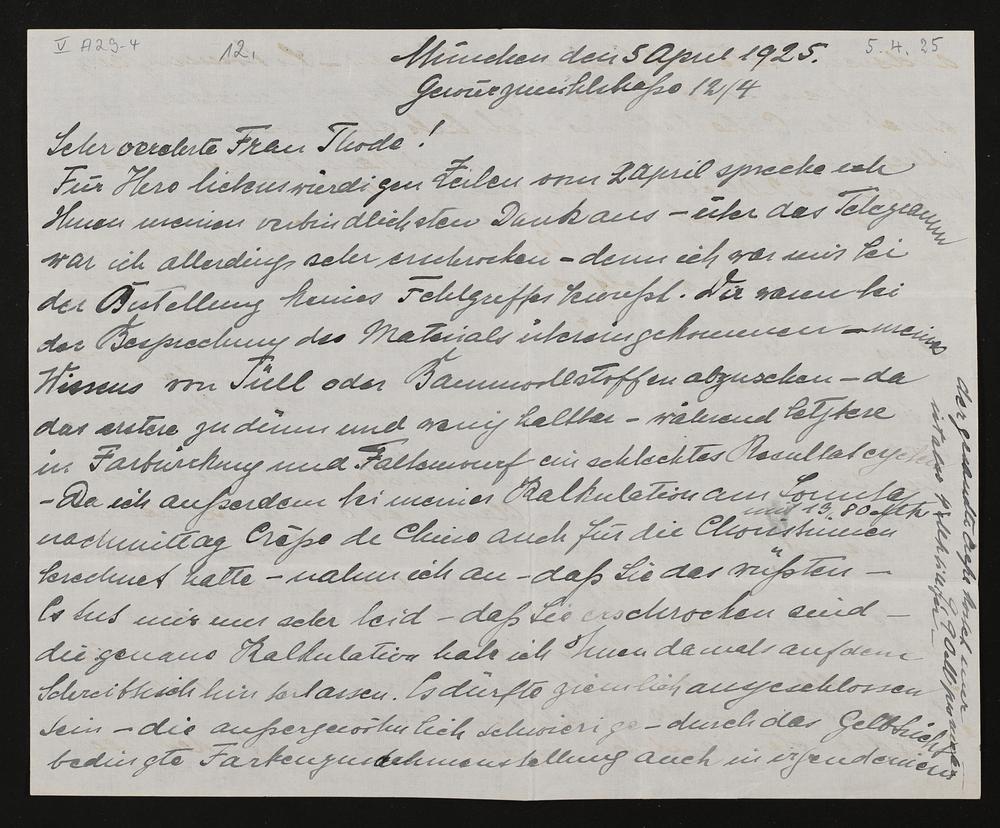 V A29-4
12.
5. 4. 25
München den 5 April 1925.
Gewürzmühlstraße 12/4
Sehr verehrte Frau Thode!
Für Ihre liebenswürdigen Zeilen vom 2 April spreche ich
Ihnen meinen verbindlichsten Dank aus – über das Telegramm
war ich allerdings sehr erschrocken – denn ich war mir bei
der Bestellung keines Fehlgriffes bewußt. Wir waren bei
der Besprechung des Materials übereingekommen – meines
Wissens von Tüll oder Baumwollstoffen abzusehen – da
das erstere zu dünn und wenig haltbar – während letztere
in Farbwirkung und Faltenwurf ein schlechtes Resultat
– Da ich außerdem bei meiner Kalkulation am Sonntag
mit 13,80 Mk
nachmittag Crêpe de Chine auch für die
berechnet hatte – nahm ich an – daß Sie das wüßten –
Es tut mir nur sehr leid – daß Sie erschrocken sind –
die genaue Kalkulation habe ich Ihnen damals auf dem
Schreibtisch hinterlassen. Es dürfte ziemlich ausgeschlossen
sein – die außergewöhnlich schwierige – durch das Gelblicht
bedingte Farbenzusammenstellung auch in irgendeinem
der gesandte Crêpe kostet nur
pro Meter
ist also